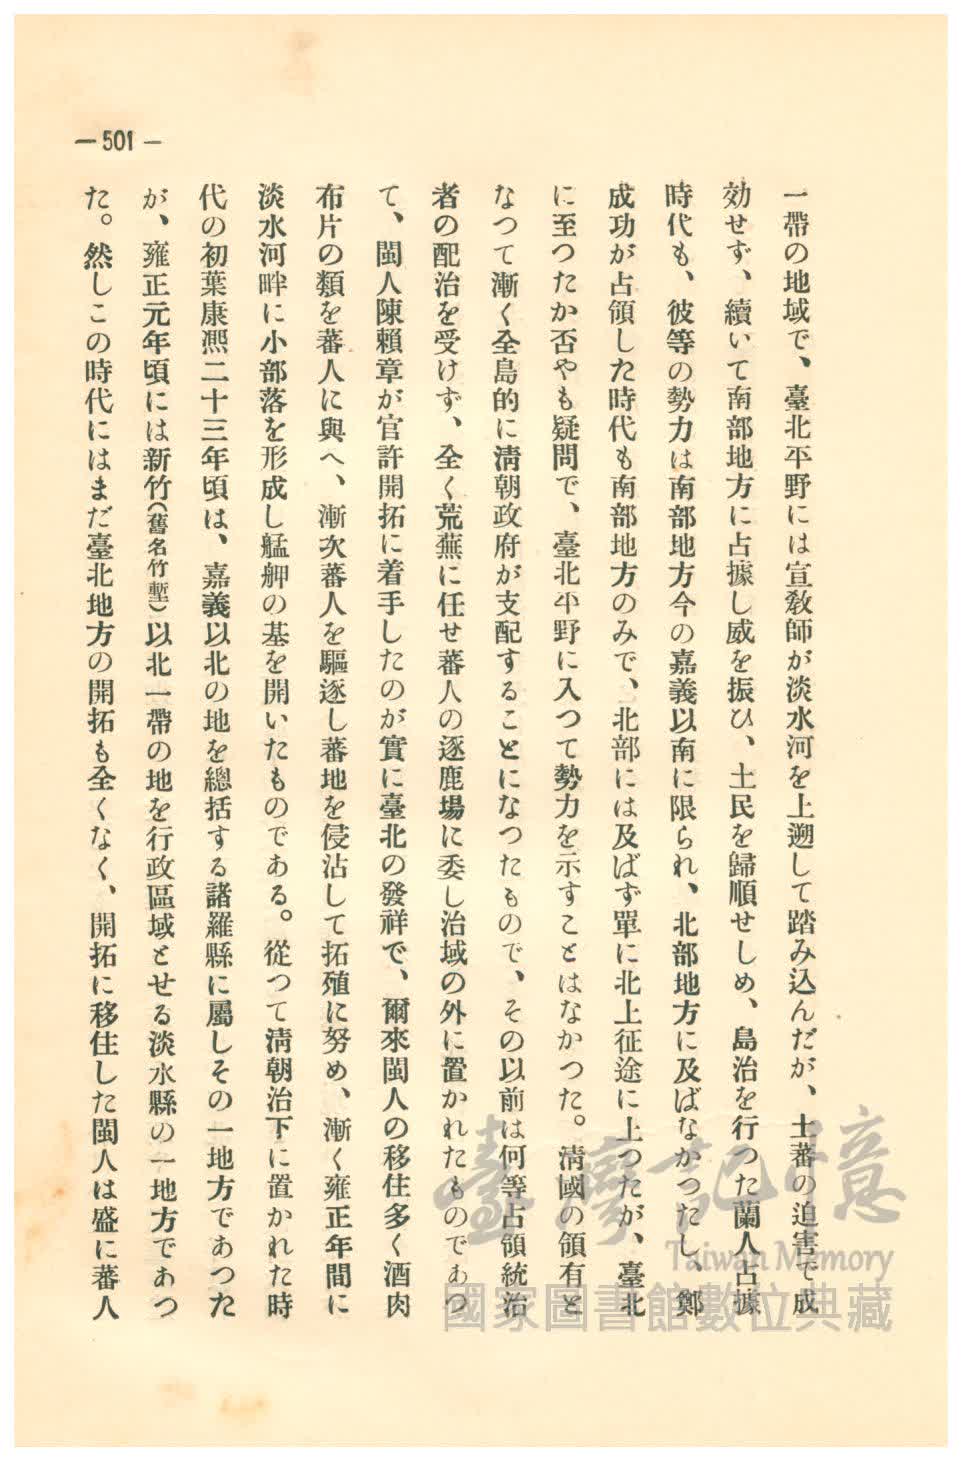 —501—
一帶の地域で、臺北平野には宣教師が淡水河を上遡して踏み込んだが、土蕃の迫害で成
効せず、續いて南部地方に占據し威を振ひ、土民を歸順せしめ、島治を行つた蘭人占據
時代も、彼等の勢力は南部地方今の嘉義以南に限られ、北部地方に及ばなかつたし、鄭
成功が占領した時代も南部地方のみで、北部には及ばず單に北上征途に上つたが、臺北
に至つたか否やも疑問で、臺北平野に入つて勢力を示すことはなかつた。淸國の領有と
なつて漸く全島的に淸朝政府が支配することになつたもので、その以前は何等占領統治
者の配治を受けず、全く荒蕪に任せ蕃人の逐鹿場に委し治域の外に置かれたものであつ
て、閩人陳賴章が官許開拓に着手したのが實に臺北の發祥で、爾來閩人の移住多く酒肉
布片の類を蕃人に與へ、漸次蕃人を驅逐し蕃地を侵沾して拓殖に努め、漸く雍正年間に
淡水河畔に小部落を形成し艋舺の基を開いたものである。從つて淸朝治下に置かれた時
代の初葉康凞二十三年頃は、嘉義以北の地を總括する諸羅縣に屬しその一地方であつた
が、雍正元年頃には新竹(舊名竹塹)以北一帶の地を行政區域とせる淡水縣の一地方であつ
た。然しこの時代にはまだ臺北地方の開拓も全くなく、開拓に移住した閩人は盛に蕃人
臺灣記憶
Taiwan Memory
國家圖書館數位典藏